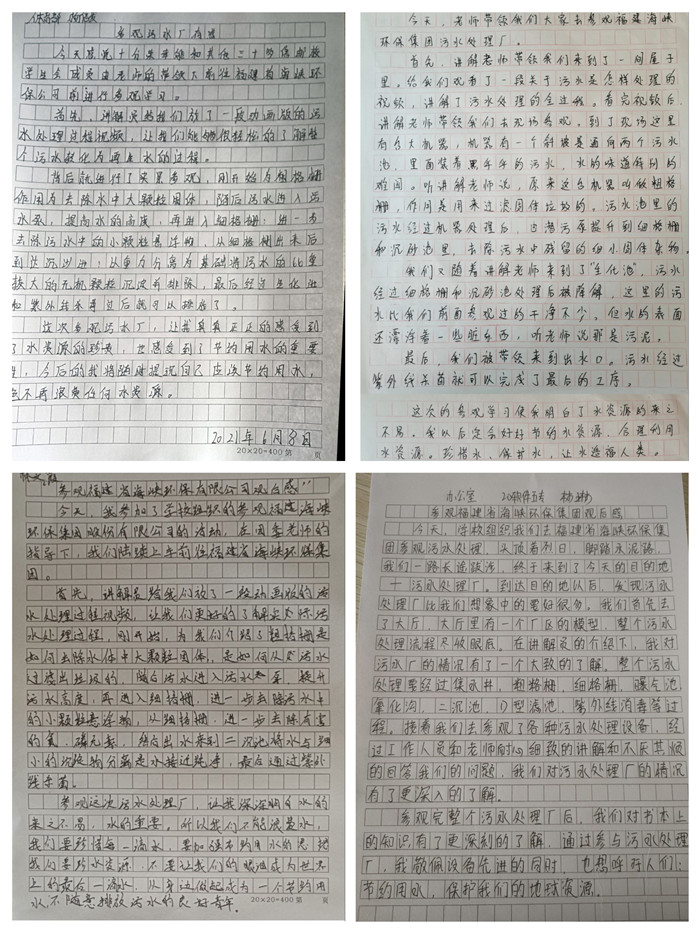 参观污水厂有感
今天陈悦十分荣幸能和其他三十多位团校
学生会成员由老师的带领下前往福建省海峡环
保公司前进行参观学习。
首先,讲解员给我们放了一段动画版的污
水处理过程视频,让我们能够很轻松的了解整
个污水转化为再生水的过程。
背后就进行了实景参观,刚开始为粗格栅
作用为去除水中大颗粒固体,随后污水进入污
水泵,提高水的高度,再进入细格栅:进一步
去除污水中的小颗粒悬浮物,从细格栅出来后
到达沉沙池:从重力分离为基础将污水的比重
较大的无机颗粒沉淀并排除,最后经过生化池
和紫外线杀毒过后就可以排放了。
这次参观污水厂,让我真真正正的感受到
了水资源的珍贵,也感受到了节约用水的重要
性,今后的我将随时提现自己应该节约用水,
绝不再浪费任何水资源。
2021年6月8日
20×20=400 第 页
今天,老师带领我们大家去参观福建海峡
环保集团污水处理厂。
首先,讲解老师带领我们来到了一间屋子
里。给我们观看了一段关于污水是怎样处理的
视频,讲解了污水处理的全过程。看完视频后,
讲解老师带领我们去现场参观。到了现场这里
有台大机器,机器有一个斜坡是通向两个污水
池,里面装着黑乎乎的污水,水的味道特别的
难闻。听讲解老师说,原来这台机器叫做粗格
栅,作用是用来过滤固体垃圾的。污水池里的
污水经过机器处理后,由潜污泵提升到细格栅
和沉砂池里,去除污水中残留的细小固体杂物。
我们又随着讲解老师来到了“生化池”,污水
经过细格栅和沉砂池处理后被降解,这里的污
水比我们前面参观过的干净不少,但水的表面
还漂浮着一些脏东西,听老师说那是污泥。
最后,我们被带领来到出水口。污水经过
紫外线杀菌就可以完成了最后的工序。
这次的参观学习使我明白了水资源的来之
不易。我以后定会好好节约水资源,合理利用
水资源。珍惜水,保护水,让水造福人类。
参观福建省海峡环保有限公司观后感”
今天,我参加了学校组织的参观福建海峡
环保集团股份有限公司的活动,在团委老师的
指导下,我们陆续上车前往福建省海峡环保集
团。
首先,讲解员给我们放了一段动画版的污
水处理过程视频,让我们更好的了解实际污
水处理过程,刚开始,为我们介绍了粗格栅是
如何去除水体中大颗粒固体,是如何从从污水
过滤出垃圾的,随后污水进入污水泵,提升
污水高度,再进入细格栅,进一步去除污水中
的小颗粒悬浮物,从细格栅,进一步去除有害
的氮、磷元素,然后出水来到二沉池将水与细
小的沉淀物分离走水接过纯净,最后通过紫外
线杀菌。
参观这次污水处理厂,让我深深明白水的
来之不易,水的重要。所以我们不能浪费水,
我们要珍惜每一滴水,要加强节约用水的意识
我们要珍水资源,不要让我们的眼泪成为世界
上的最后一滴水,从身边做起成为一个节约用
水,不随意排放污水的良好青年。
20×20=400 第 页
办公室 20软件五专 杨琳
参观福建省海峡环保集团观后感
今天,学校组织我们去福建省海峡环保集
团参观污水处理,头顶着烈日,脚踏水泥路,
我们一路长途跋涉,终于来到了今天的目的地
—污水处理厂。到达目的地以后,发现污水
处理厂比我们想象中的要好很多。我们首先去
了大厅,大厅里有一个厂区的模型,整个污水
处理流程尽收眼底。在讲解员的介绍下,我对
污水厂的情况有了一个大致的了解。整个污水
处理要经过集水井,粗格栅,细格栅,曝气池,
氧化沟,二沉池,D型滤池,紫外线消毒等过
程。接着我们去参观了各种污水处理设备,经
过工作人员和老师耐心细致的讲解和不厌其烦
的回答我们的问题,我们对污水处理厂的情况
有了更深入的了解。
参观完整个污水处理厂后,我们对书本上
的知识有了更深刻的了解,通过参与污水处理
厂,我敬佩设备先进的同时,也想呼吁人们:
节约用水,保护我们的地球资源。